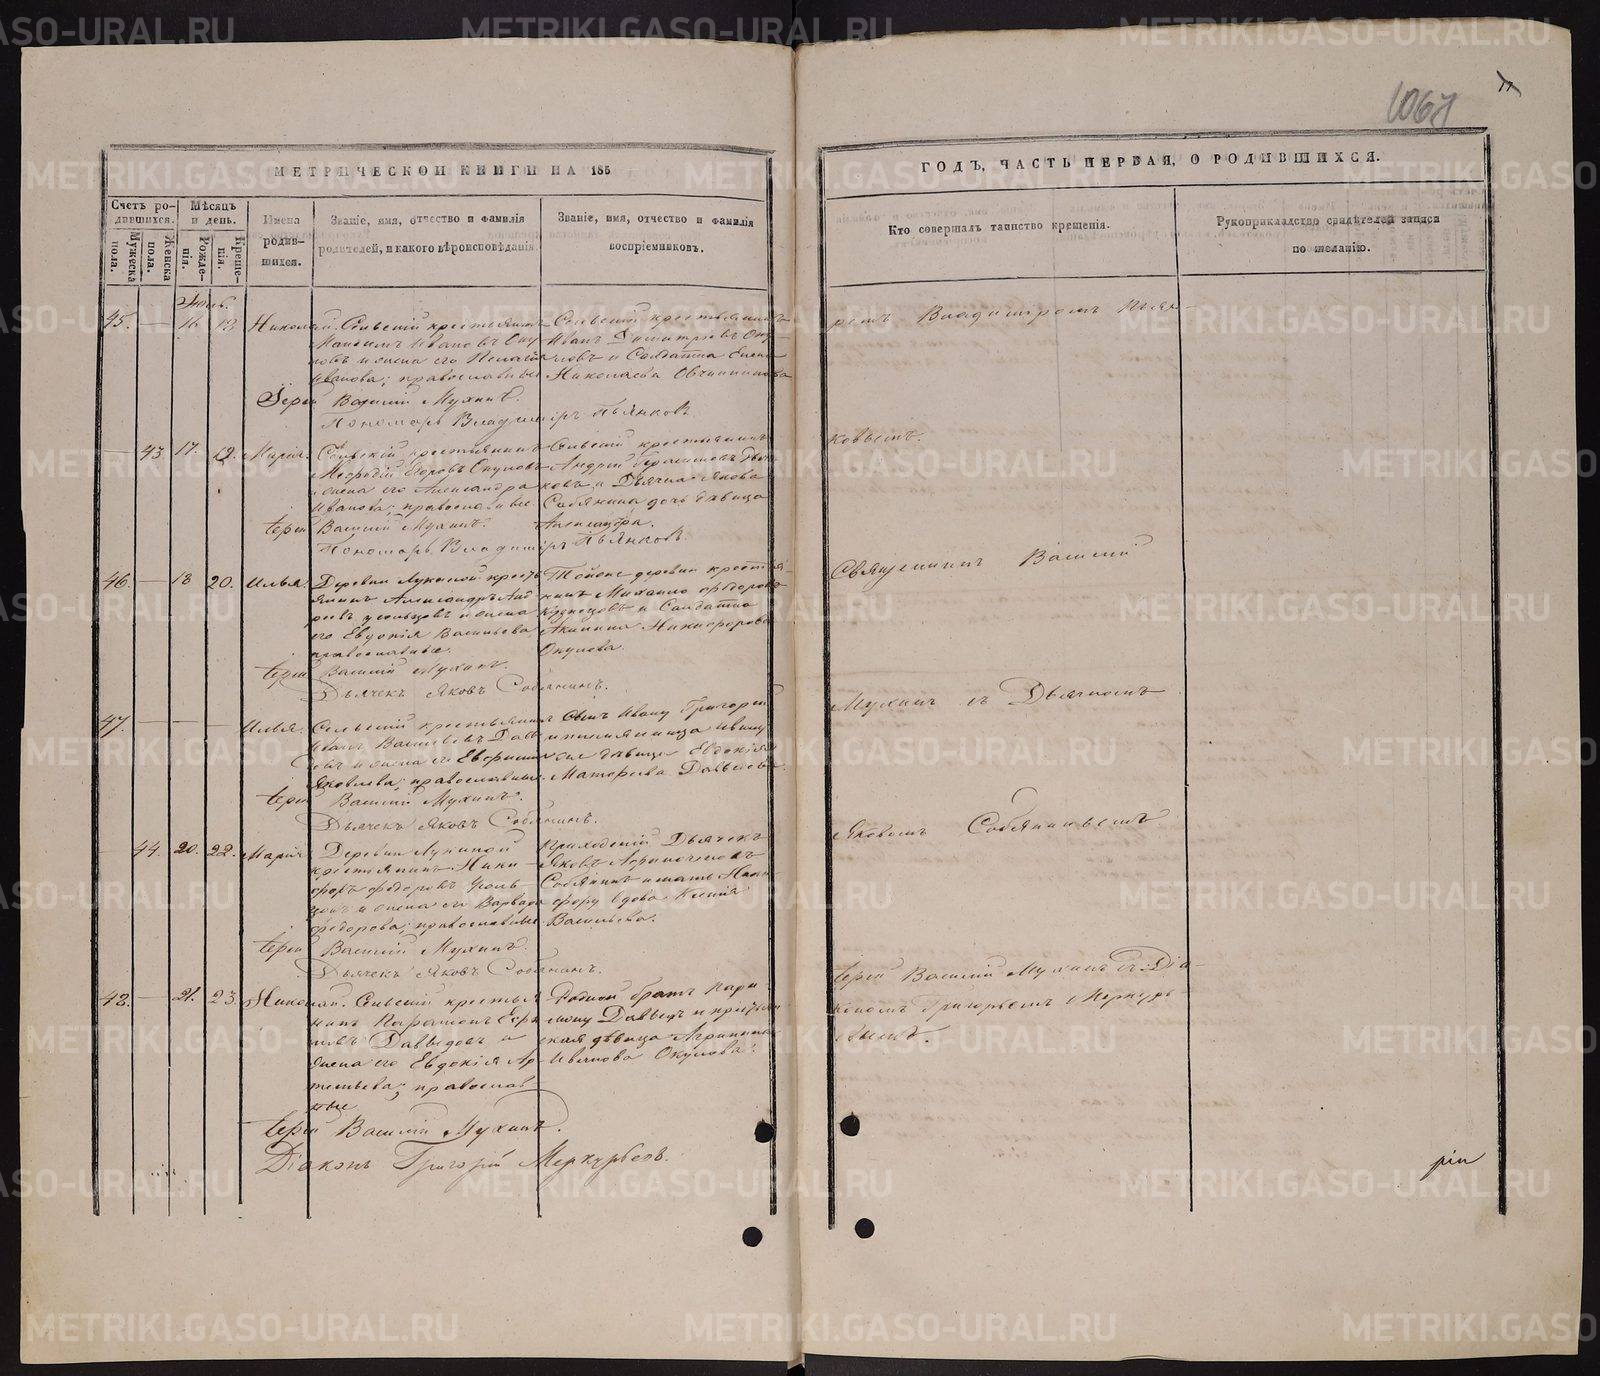 1067
11
МЕТРИЧЕСКОИ КНИГИ НА 185
ГОДЪ, ЧАСТЬ ПЕРВАЯ, О РОДИВШИХСЯ.
Счетъ ро-
дившихся.
Мужеска
пола.
Женска
пола.
Мѣсяцъ
и день.
Рожде-
нія.
Креще-
нія.
Имена
родив-
шихся.
Званіе, имя, отчество и фамилія
родителей, и какого вѣроисповѣданія.
Званіе, имя, отчество и фамилія
воспріемниковъ.
Кто совершалъ таинство крещенія.
Рукоприкладство свидѣтелей записи
по желанію.
Іюль.
45. — 16 19 Николай. Сельскій крестьянинъ
Иванова; православные
Сельскій крестьянинъ
Иванъ Димитріевъ Оку-
ловъ и Солдатка Елена
Николаева Овчинникова
Іерей Василій Мухинъ.
Пономарь Владиміръ Пьянковъ.
ремъ Владиміромъ Пьян-
— 43 17. 19. Марія. Сельскій крестьянинъ
Егоровъ Окуловъ
и жена его Александра
Иванова; православные
Сельскій крестьянинъ
Андрей
ковъ и Дьячка Якова
Собянина дочь дѣвица
Александра.
Іерей Василій Мухинъ.
Пономарь Владиміръ Пьянковъ.
ковымъ.
46. — 18 20. Илья. Деревни Лукиной кресть-
янинъ Александръ Анд-
реевъ и жена
его Евдокія Васильева
православные.
Тойже деревни крестья-
нинъ Михаилъ Ѳедоровъ
Кузнецовъ и Солдатка
Акилина Никифорова
Окулова.
Іерей Василій Мухинъ.
Дьячекъ Яковъ Собянинъ.
Священникъ Василій
47. — — — Илья. Сельскій крестьянинъ
Иванъ Васильевъ Давы-
довъ и жена его Евфросинья
Яковлева; православные.
Сынъ Ивану Григорій
и племянница Ивану
же дѣвица Евдокія
Матѳеева Давыдова.
Іерей Василій Мухинъ.
Дьячекъ Яковъ Собянинъ.
Мухинъ съ Дьячкомъ
— 44. 20. 22. Марія. Деревни Лукиной
крестьянинъ Ники-
форъ Ѳедоровъ Усоль-
цовъ и жена его Варвара
Ѳедорова; православные.
Приходскій Дьячекъ
Яковъ
Собянинъ и мать Ники-
фору вдова Ксенія
Васильева.
Іерей Василій Мухинъ.
Дьячекъ Яковъ Собянинъ.
Яковомъ Собяниновымъ
48. — 21. 23. Николай. Сельскій крестья-
нинъ Парамонъ Ефи-
мовъ Давыдовъ и
жена его Евдокія Ар-
темьева; православ-
ные
Родной братъ Пара-
мону Давыдъ и приход-
ская дѣвица Агрипина
Иванова Окулова.
Іерей Василій Мухинъ.
Діаконъ Григорій Меркурьевъ.
Іерей Василій Мухинъ съ Діа-
кономъ Григорьемъ Меркурь-
евымъ.
ріи